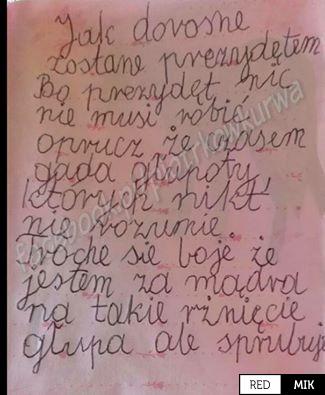 Jak dorosne
zostane prezydętem
Bo prezydęt nic
nie musi robić
oprucz że czasem
gada głupoty
których nikt
nie rozumie.
Troche sie boje że
jestem za mądra
na takie rżnięcie
głupa ale sprubuje
RED MIK